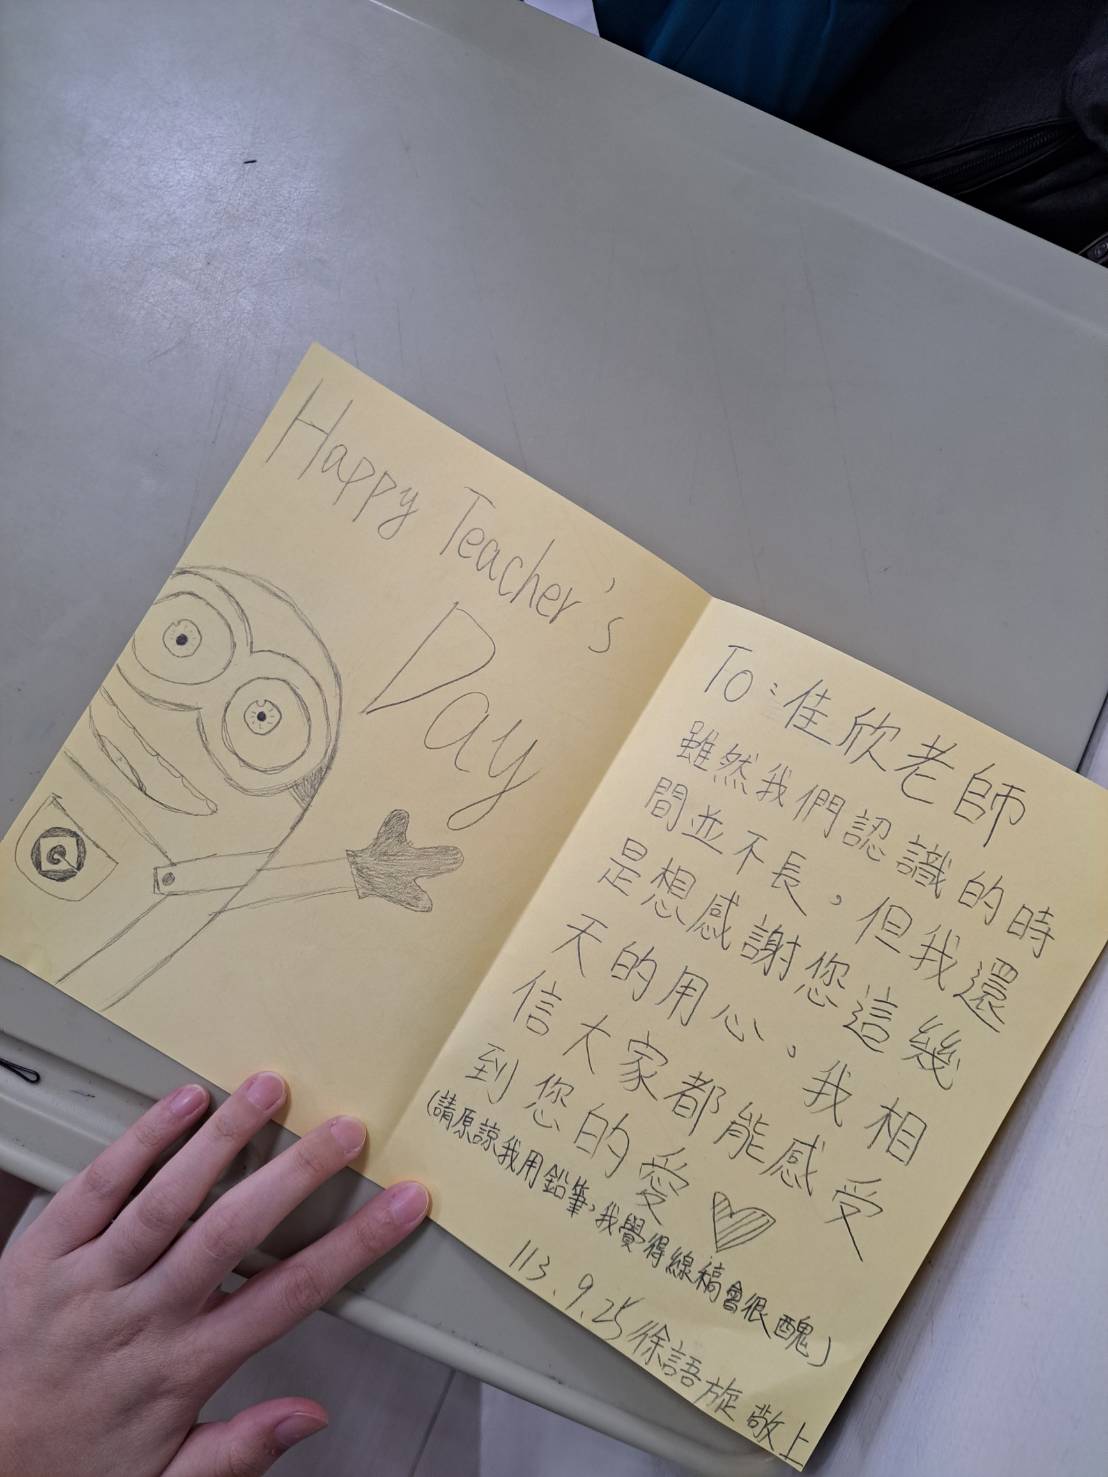 Happy Teacher's
Day
To：佳欣老師
雖然我們認識的時
間並不長，但我還
是想感謝您這幾
天的用心，我相
信大家都能感受
到您的愛
(請原諒我用鉛筆，我覺得線稿會很醜)
113.9.25 徐語旋 敬上